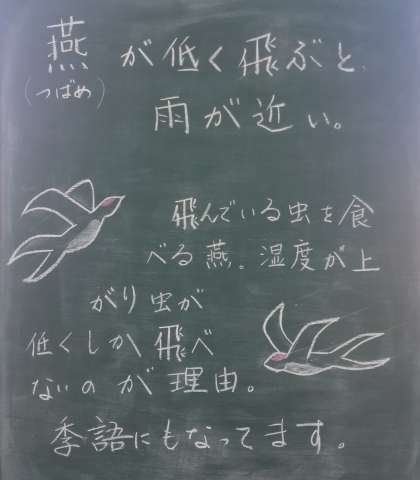 燕が低く飛ぶと、
(つばめ)
雨が近い。
飛んでいる虫を食
べる燕。湿度が上
がり虫が
低くしか飛べ
ないのが理由。
季語にもなってます。